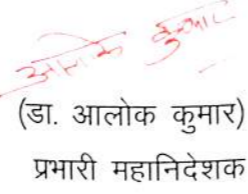 आलोक कुमार
(डा. आलोक कुमार)
प्रभारी महानिदेशक